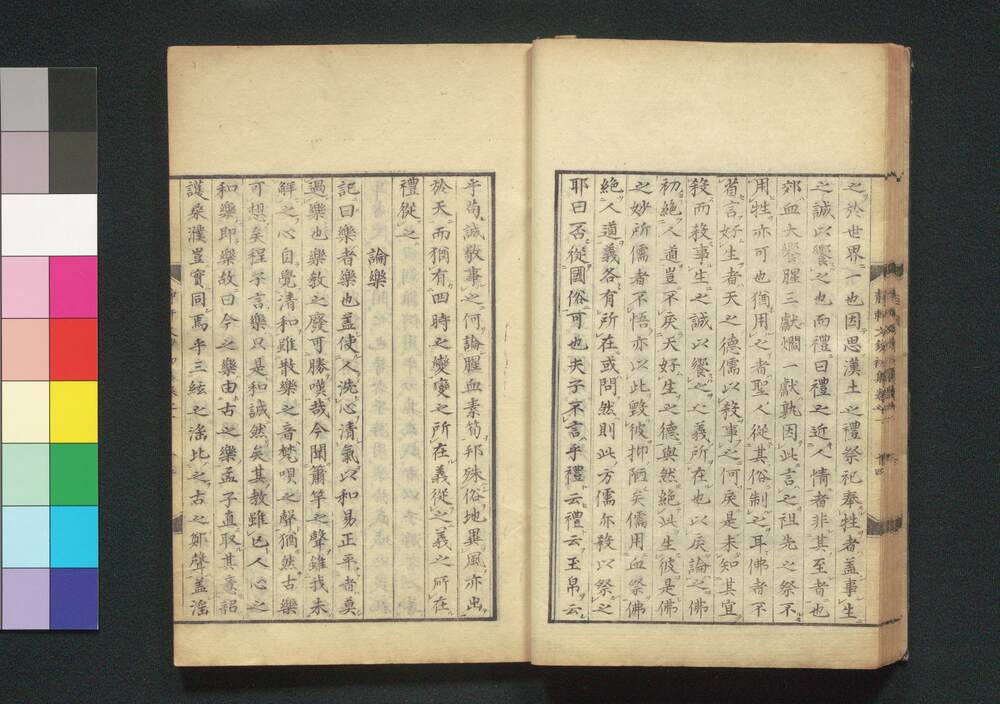 之於世界一也因思漢土之禮祭祀奉牲者盖事生
之誠以饗之也而禮曰禮之近人情者非其至者也
郊血大饗腥三獻爓一獻孰因此言之祖先之祭不
用牲亦可也猶用之者聖人從其俗制之耳佛者不
荀言好生者天之德儒以殺事之何戾是未知其宜
殺而殺事生之誠以饗之之義所在也以戾論之佛
初絕人道豈不戾天好生之德與然絕此生彼是佛
之妙所儒者不悟亦以此毀彼抑陋矣儒用血祭佛
絕人道義各有所在或問然則此方儒亦殺以祭之
耶曰否從國俗可也夫子不言乎禮云禮云玉帛云
乎苟誠敬事之何論腥血素筍邦殊俗地異風亦出
於天而猶有四時之變變之所在義從之義之所在
禮從之
論樂
記曰樂者樂也盖使人洗心清氣以和易正平者莫
過樂也樂教之廢可勝嘆哉今聞簫竽之聲雖我未
解之心自覺清和雖散樂之音梵唄之聲猶然古樂
可想矣程子言樂只是和誠然矣其教雖亡人心之
和樂即樂故曰今之樂由古之樂孟子直取其意韶
護桑濮豈實同焉乎三絃之淫比之古之鄭聲盖淫